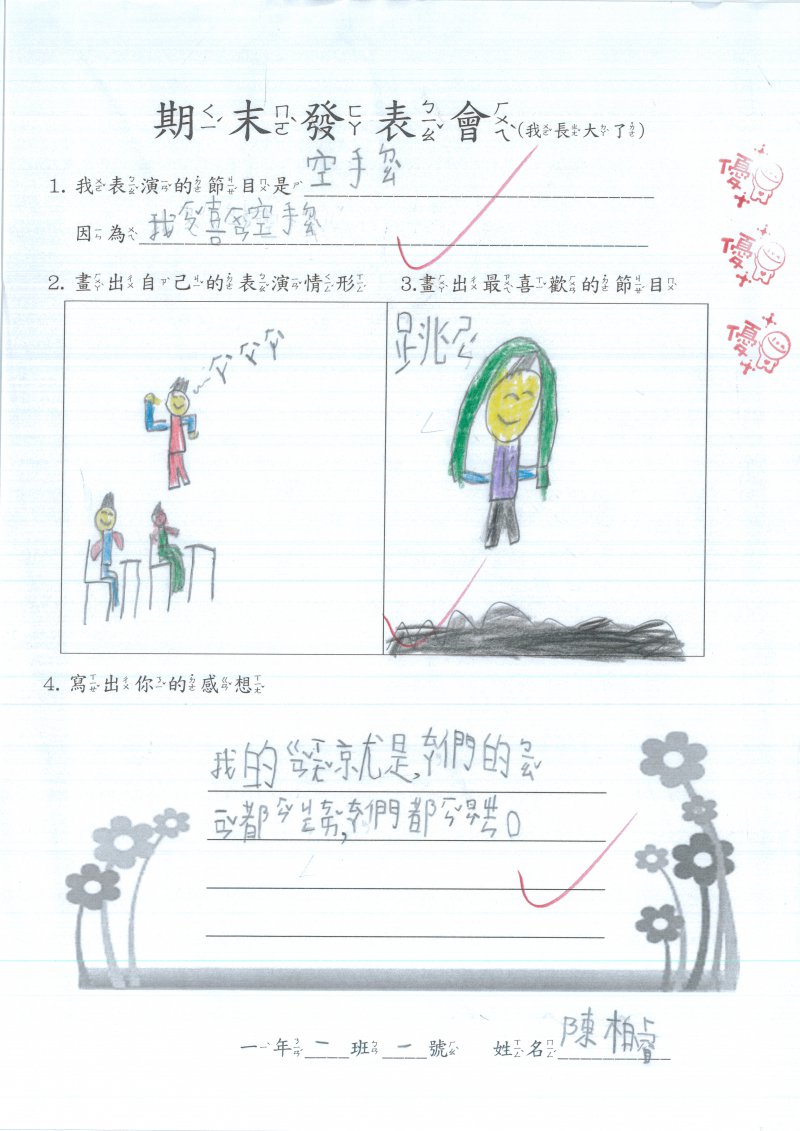 期末發表會(我長大了)
1. 我表演的節目是 空手ㄉㄠˋ
因為 我ㄗㄨㄟˋ喜ㄏㄨㄢ空手ㄉㄠˋ
2. 畫出自己的表演情形
3.畫出最喜歡的節目
優
優
優
跳ㄕㄥˊ
4. 寫出你的感想
我的ㄍㄢˇㄒㄧㄤˇ就是,ㄊㄚ們的ㄅㄧㄠˇ
ㄧㄢˇ都
們都
一年二班一號 姓名 陳柏睿